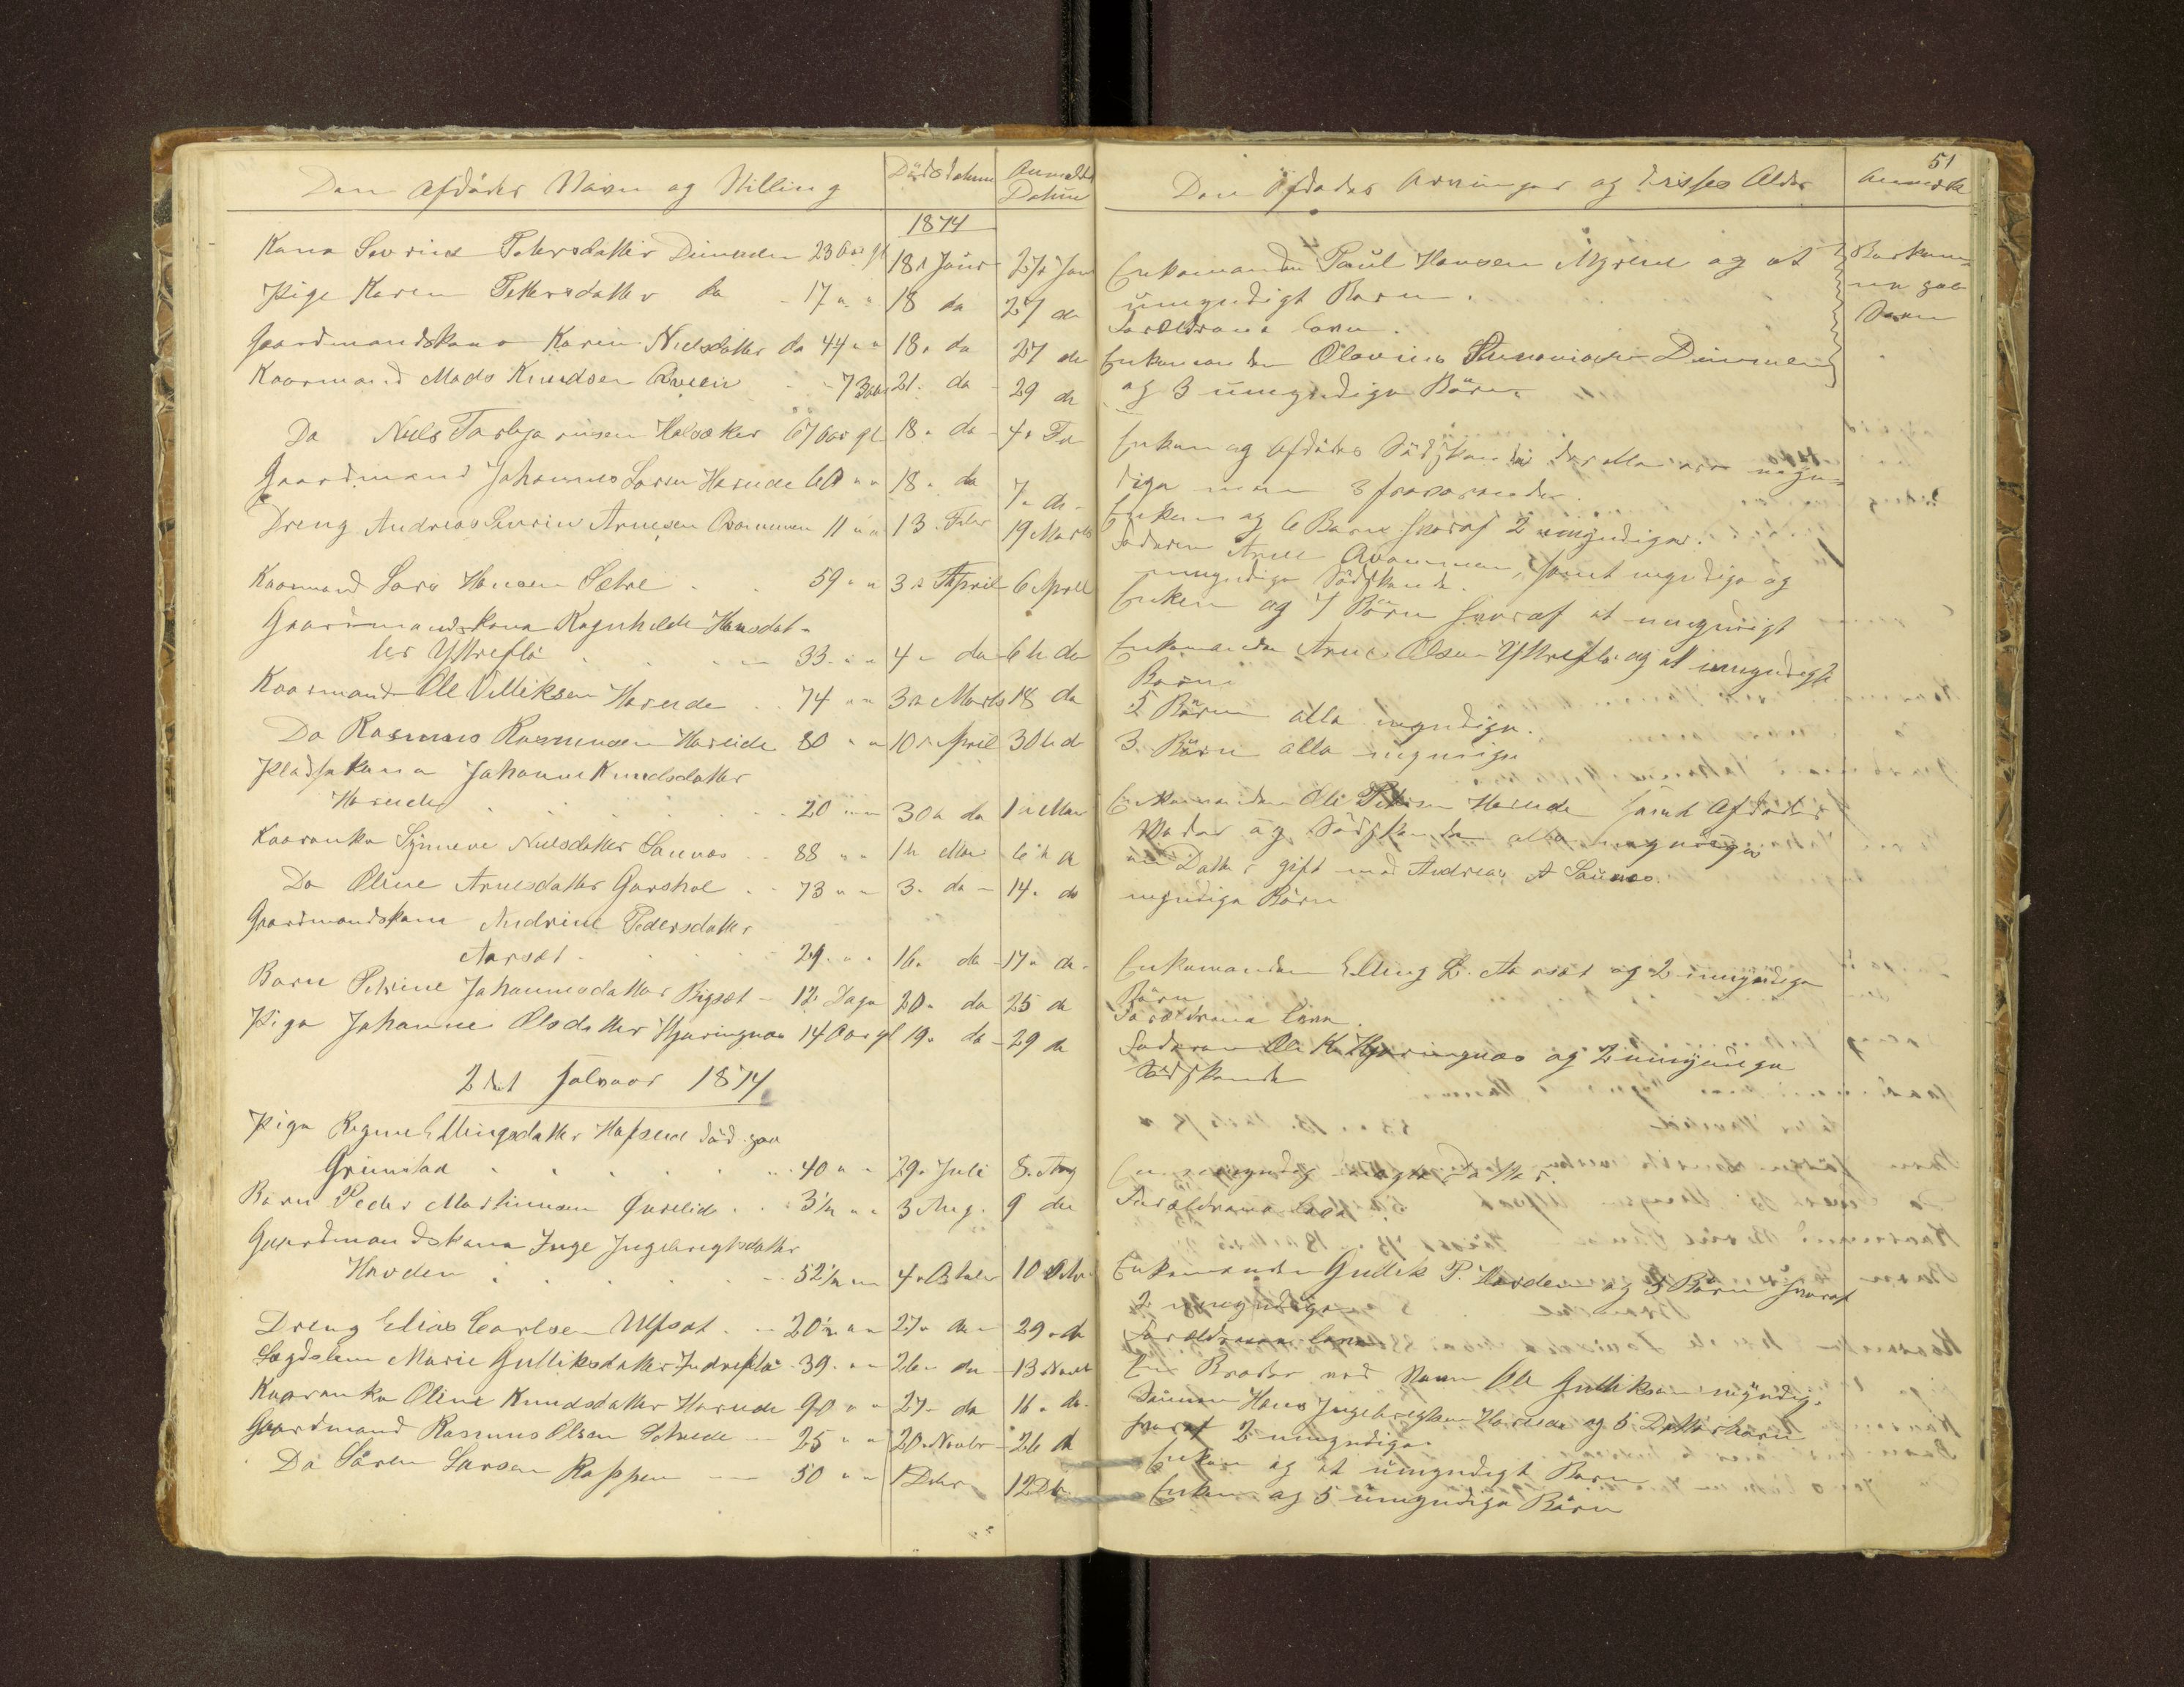 Den afdødes Navn og Stilling
Dødsdatum
Anmeldt
Datum
1874
Kone Sevrine Petersdatter Dimmen 23 Aar gl 18 Janr 27 Jan
Pige Karen Pettersdatter do 17 " " 18 do 27 do
Gaardmandskone Karen Nielsdatter do 44 " " 18 do 27 do
Kaarmand Mads Knudsen 73 aar 21 do 29 do
Do Niels Torbjørnsen 67 aar gl 18 do 4 Fe
Gaardmand Johannes Larsen Hareide 60 " " 18 do 7 do
Dreng Andreas Sevrin Arnesen Ovammen 11 " " 13 Febr 19 Marts
Kaarmand Lars Hansen Sætre 59 " " 3 April 6 April
Gaardmandskone Ragnhilde Hansdat-
ter Ytreflø 33 " " 4 do 6 do
Kaarmand Ole Velliksen Hareide 74 " " 30 Marts 18 do
Do Rasmus Rasmussen Hareide 80 " " 10 April 30 do
Pladskone Johanne Knudsdatter
Hareide 20 " " 30 do 1 Mai
Kaarenke Synneve Nielsdatter Saunes 88 " " 1 Mai 6 do
Do Oline Arnesdatter Garshol 73 " " 3 do 14 do
Gaardmandskone Andrine Pedersdatter
Aarsæt 29 " " 16 do 17 do
Barn Petrine Johannesdatter Rigsæt 12 Dage 20 do 25 do
Pige Johanne Olsdatter Hjøringnæs 14 Aar gl 19 do 29 do
2det Halvaar 1874
Pige Regine Ellingsdatter død paa
Grimstad 40 " " 29 Juli 8 Aug
Barn Peder Martinussen Overlid 3½ " " 3 Aug. 9 do
Gaardmandskone Inge Ingebrigtsdatter
Havden 52½ " " 4 Octobr 10 Octr
Dreng Elias Carlsen Ulfsæt 20½ " " 27 do 29 do
Lægdslem Marie Gulliksdatter Indreflø 39 " " 26 do 13 Novbr
Kaarenke Oline Knudsdatter Hareide 90 " " 27 do 16 do
Gaardmand Rasmus Olsen 25 " " 20 Novbr 26 do
Do Søren Larsen Røppen 50 " " 1 Debr 12 Db
51
Den Afdødes Arvinger og disses Alder
Anmærk
Enkemanden Paul Hansen Myrene og et
umyndigt Barn.
Forældrene leve.
Enkemanden Olavius Dimmen
og 3 umyndige Børn.
Enken og Afdødes Sødskende der alle ere myn-
dige men 3 fraværende.
Enken og 6 Børn hvoraf 2 umyndige.
Faderen Arne Ovammen, samt myndige og
umyndige Sødskende.
Enken og 7 Børn hvoraf et umyndigt
Enkemanden Arne Olsen Ytreflø og et umyndigt
Barn
5 Børn alle myndige.
3 Børn alle myndige
Enkemanden Ole Petersen Hareide samt Afdødes
Moder og Sødskende alle myndige
en Datter gift med Andreas A Saunes.
myndige Børn
Enkemanden Elling L. Aarsæt og 2 umyndige
Børn
Forældrene leve.
Faderen Ole K. Hjøringnæs og 2 umyndige
Sødskende
En myndig Datter.
Forældrene leve
Enkemanden Gullik P. Havden og 5 Børn hvoraf
2 umyndige
Forældrene leve
En Broder ved Navn Ole Gulliksen myndig.
Sønnen Hans Ingebrigtsen Hareide og 5 Datterbørn
hvoraf 2 umyndige.
Enken og et umyndigt Barn
Enken og 5 umyndige Børn